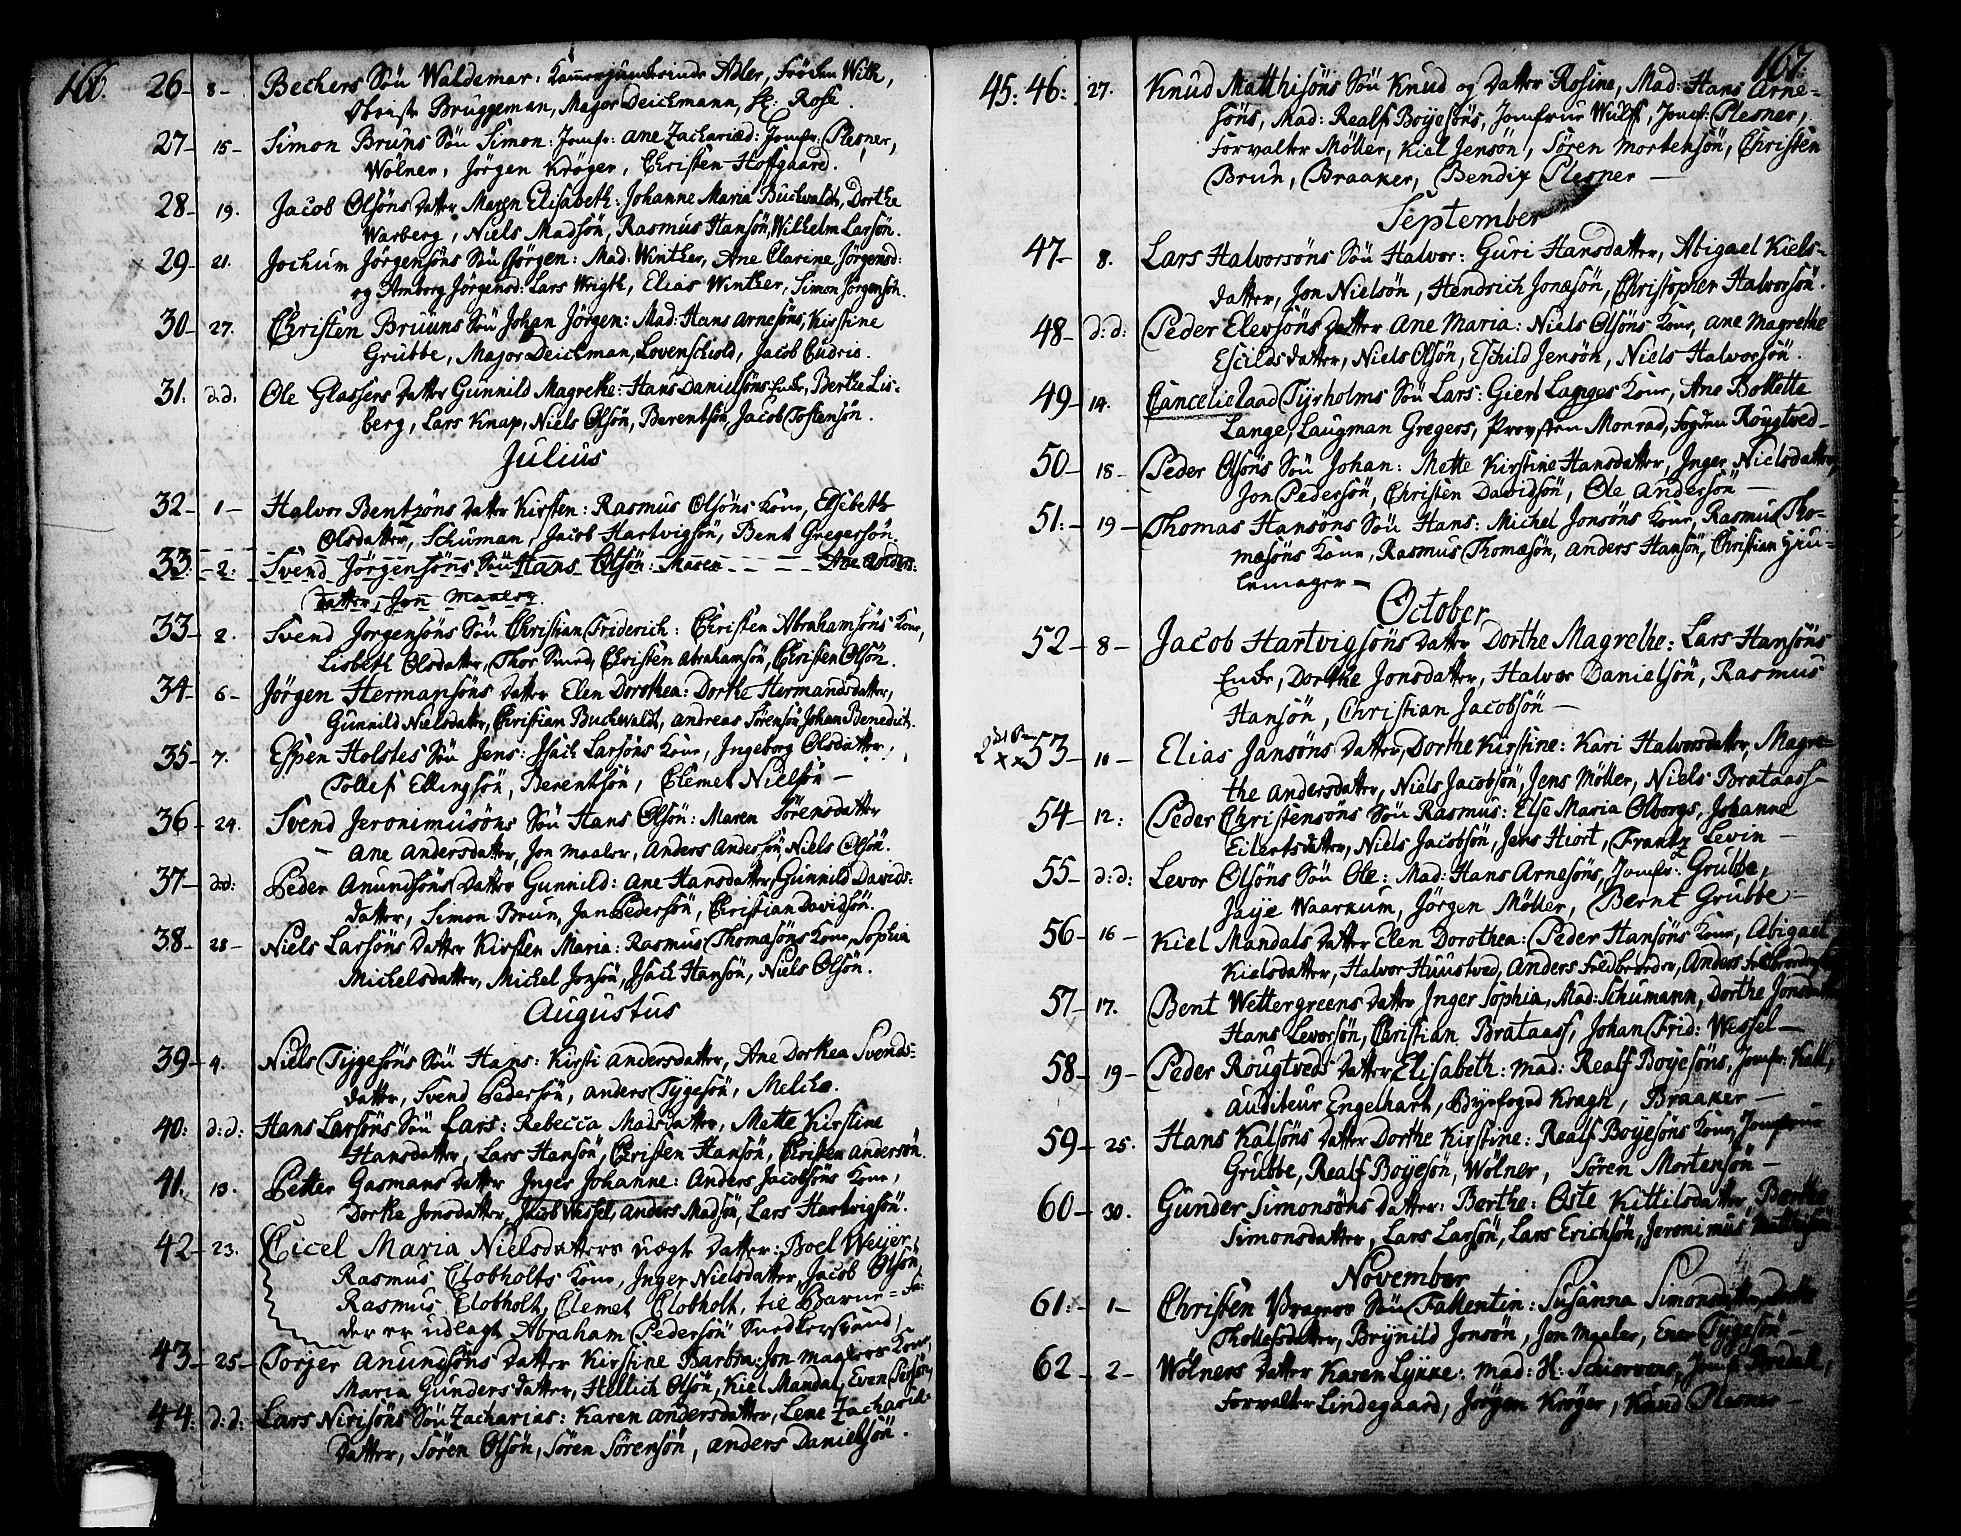 166.
26 - 8 - Bechers Sön Waldemar: Kammerjunkerinde Adler, Fröchen With,
Obrist Bruggeman, Major Deichmann, Hr: Rose.
27 - 15 - Simon Bruns Sön Simon: Jomfr: Ane Zachariæd: Jomfr: Plesner,
Wölner, Jörgen Kröger, Christen Hofgaard.
28 - 19. Jacob Olsöns Datter Maren Elisabeth: Johanne Maria Buchwaldt, Dorthe
Warberg, Niels Madsön, Rasmus Hansön, Wilhelm Larsön.
29 - 21. Jochum Jörgensöns Sön Jörgen: Mad: Winther, Ane Clarine Jörgensd:
og Amborg Jörgensd: Lars Wrigth, Elias Winther, Simon Jörgensön.
30 - 27. Christen Bruuns Sön Johan Jörgen: Mad: Hans Arnesöns, Kirstine
Grubbe, Major Deichman, Lovenschiold, Jacob Cudris.
31. d:d: Ole Glassers Datter Gunnild Magrethe: Hans Danielsöns Enke, Berthe Lis-
berg, Lars Knap, Niels Olsön, Berentsön, Jacob Tostensön.
Julius
32 - 1 - Halvor Bentzöns Datter Kirsten: Rasmus Olsöns Kone, Elsebeth
Olsdatter, Schuman, Jacob Hartvigsön, Bent Gregersön.
33. - 2. Svend Jörgensöns Sön Hans Olsön: Maren Ane Anders:
datter, Jon Maaler.
33 - 2. Svend Jorgensöns Sön Christian Friderich: Christen Abrahamsöns Kone,
Lisbeth Olsdatter, Thor Smed, Christen Abrahamsön, Christen Olsön.
34 - 6 - Jörgen Hermansöns Datter Elen Dorothea: Dorthe Hermandsdatter,
Gunnild Nielsdatter, Christian Buchwaldt, Andreas Sörensön, Johan Benedict.
35 - 7. Espen Holstes Sön Jens: Isach Larsöns Kone, Ingeborg Olsdatter,
Tollef Ellingsön, Berentsön, Clemet Nielsön -
36 - 24. Svend Jeronimusöns Sön Hans Olsön: Maren Sörensdatter
- Ane Andersdatter, Jon Maaler, Anders Andersön, Niels Olsön.
37 - d:d: Peder Anundsöns Datter Gunnild: Ane Hansdatter, Gunnild Davids-
datter, Simon Brun, Jan Pedersön, Christian Davidsön.
38 - 28 - Niels Larsöns Datter Kirsten Maria: Rasmus Thomasöns Kone, Sophia
Michelsdatter, Michel Jonsön, Isach Hansön, Niels Olsön.
Augustus
39 - 4. Niels Tygesöns Sön Hans: Kirsti Andersdatter, Ane Dorthea Svends-
datter, Svend Pedersön, Anders Tygesön, Melche.
40: d:d: Hans Larsöns Sön Lars: Rebecca Madsdatter, Mette Kirstine
Hansdatter, Lars Hansön, Christen Hansön, Christen Andersön.
41. 13. Petter Gasmans Datter Inger Johanne: Anders Jacobsöns Kone,
Dorthe Jonsdatter, Jacob Wessel, Anders Madsön, Lars Hartvigsön.
42 - 23. Cicel Maria Nielsdatters uægte Datter: Boel Weyer,
Rasmus Clobholts Kone, Inger Nielsdatter, Jacob Olsön,
Rasmus Clobholt, Clemet Clobholt, til Barne=Fa:
der er udlagt Abraham Pedersön Snedkersvend,
43 - 25 - Torjer Anundsöns Datter Kirstine Barbra: Jon Maalers Kone,
Maria Gundersdatter, Hellich Olsön, Kiel Mandal, Even
44. d:d: Lars Nirisöns Sön Zacharias: Karen Andersdatter, Lene Zachariæ-
Datter, Sören Olsön, Sören Sörensön, Anders Danielsön.
167.
45: 46: 27. Knud Matthisöns Sön Knud og Datter Rosine, Mad: Hans Arne-
söns, Mad: Realf Boyesöns, Jomfrue Wulff, Jomf: Plesner,
Forvalter Möller, Kiel Jensön, Sören Mortensön, Christen
Brun, Braaker, Bendix Plesner -
September
47 - 8. Lars Halvorsöns Sön Halvor: Guri Hansdatter, Abigael Kiels-
datter, Jon Nielsön, Hendrich Jonæsön, Christopher Halvorsön.
48 - d:d: Peder Elevsöns Datter Ane Maria: Niels Olsöns Kone, Ane Magrethe
Escildsdatter, Niels Olsön, Eschild Jensön, Niels Halvorsön.
49 - 14. Cancelieraad Tyrholms Sön Lars: Giert Langes Kone, Ane Bollette
Lange, Laugman Gregers, Provsten Monrad, Fogden Rougtved -
50 - 18 - Peder Olsöns Sön Johan: Mette Kirstine Hansdatter, Inger Nielsdatter,
Jon Pedersön, Christen Davidsön, Ole Andersön -
51: - 19 - Thomas Hansöns Sön Hans: Michel Jonsöns Kone, Rasmus Tho-
mæsöns Kone, Rasmus Thomæsön, Anders Hansön, Christian Gru-
lemager -
October
52 - 8 - Jacob Hartvigsöns Datter Dorthe Magrethe: Lars Hansöns
Enke, Dorthe Jonsdatter, Halvor Danielsön, Rasmus
Hansön, Christian Jacobsön -
53 - 10 - Elias Jansöns Datter, Dorthe Kirstine: Kari Halvorsdatter, Magre-
the Andersdatter, Niels Jacobsön, Jens Möller, Niels Brataas -
54 - 12: Peder Christensöns Sön Rasmus: Else Maria Olborgs, Johanne
Eilertsdatter, Niels Jacobsön, Jens Hiort, Frantz Levin -
55 - d:d: Levor Olsöns Sön Ole: Mad: Hans Arnesöns, Jomfr: Grubbe,
Jaye Waarnum, Jörgen Möller, Bernt Grubbe -
56 - 16 - Kiel Mandals Datter Elen Dorothea: Peder Hansöns Kone, Abigael
Kielsdatter, Halvor Huustved, Anders Feldbereder, Anders
57 - 17. Bent Wettergreens Datter Inger Sophia, Mad: Schumann, Dorthe Jonsdatter
Hans Levorsön, Christian Brataas, Johan Frid: Wessel -
58 - 19 - Peder Rougtveds Datter Elisabeth: Mad: Realf Boyesöns, Jomfr: Kall,
Auditeur Engelhart, Byefoged Kragh, Braaker -
59 - 25. Hans Kalsöns Datter Dorthe Kirstine: Realf Boyesöns Kone, Jomfrue
Grubbe, Realf Boyesön, Wölner, Sören Mortensön -
60 - 30. Gunder Simonsöns Datter: Berthe: Oste Kittilsdatter, Berthe
Simonsdatter, Lars Larsön, Lars Erichsön, Jeronimus Matthisön
November
61: - 1 - Christen Vragers Sön Fallentin: Susanna Simonsdatter, Dorthe
Thollefsdatter, Brynild Jonsön, Jon Maaler, Ener Tygesön -
62 - 2 - Wölners Datter Karen Lykke: Mad: H: Schiervens, Jomf:
Forvalter Lindegaard, Jörgen Kröger, Knud Plesner -